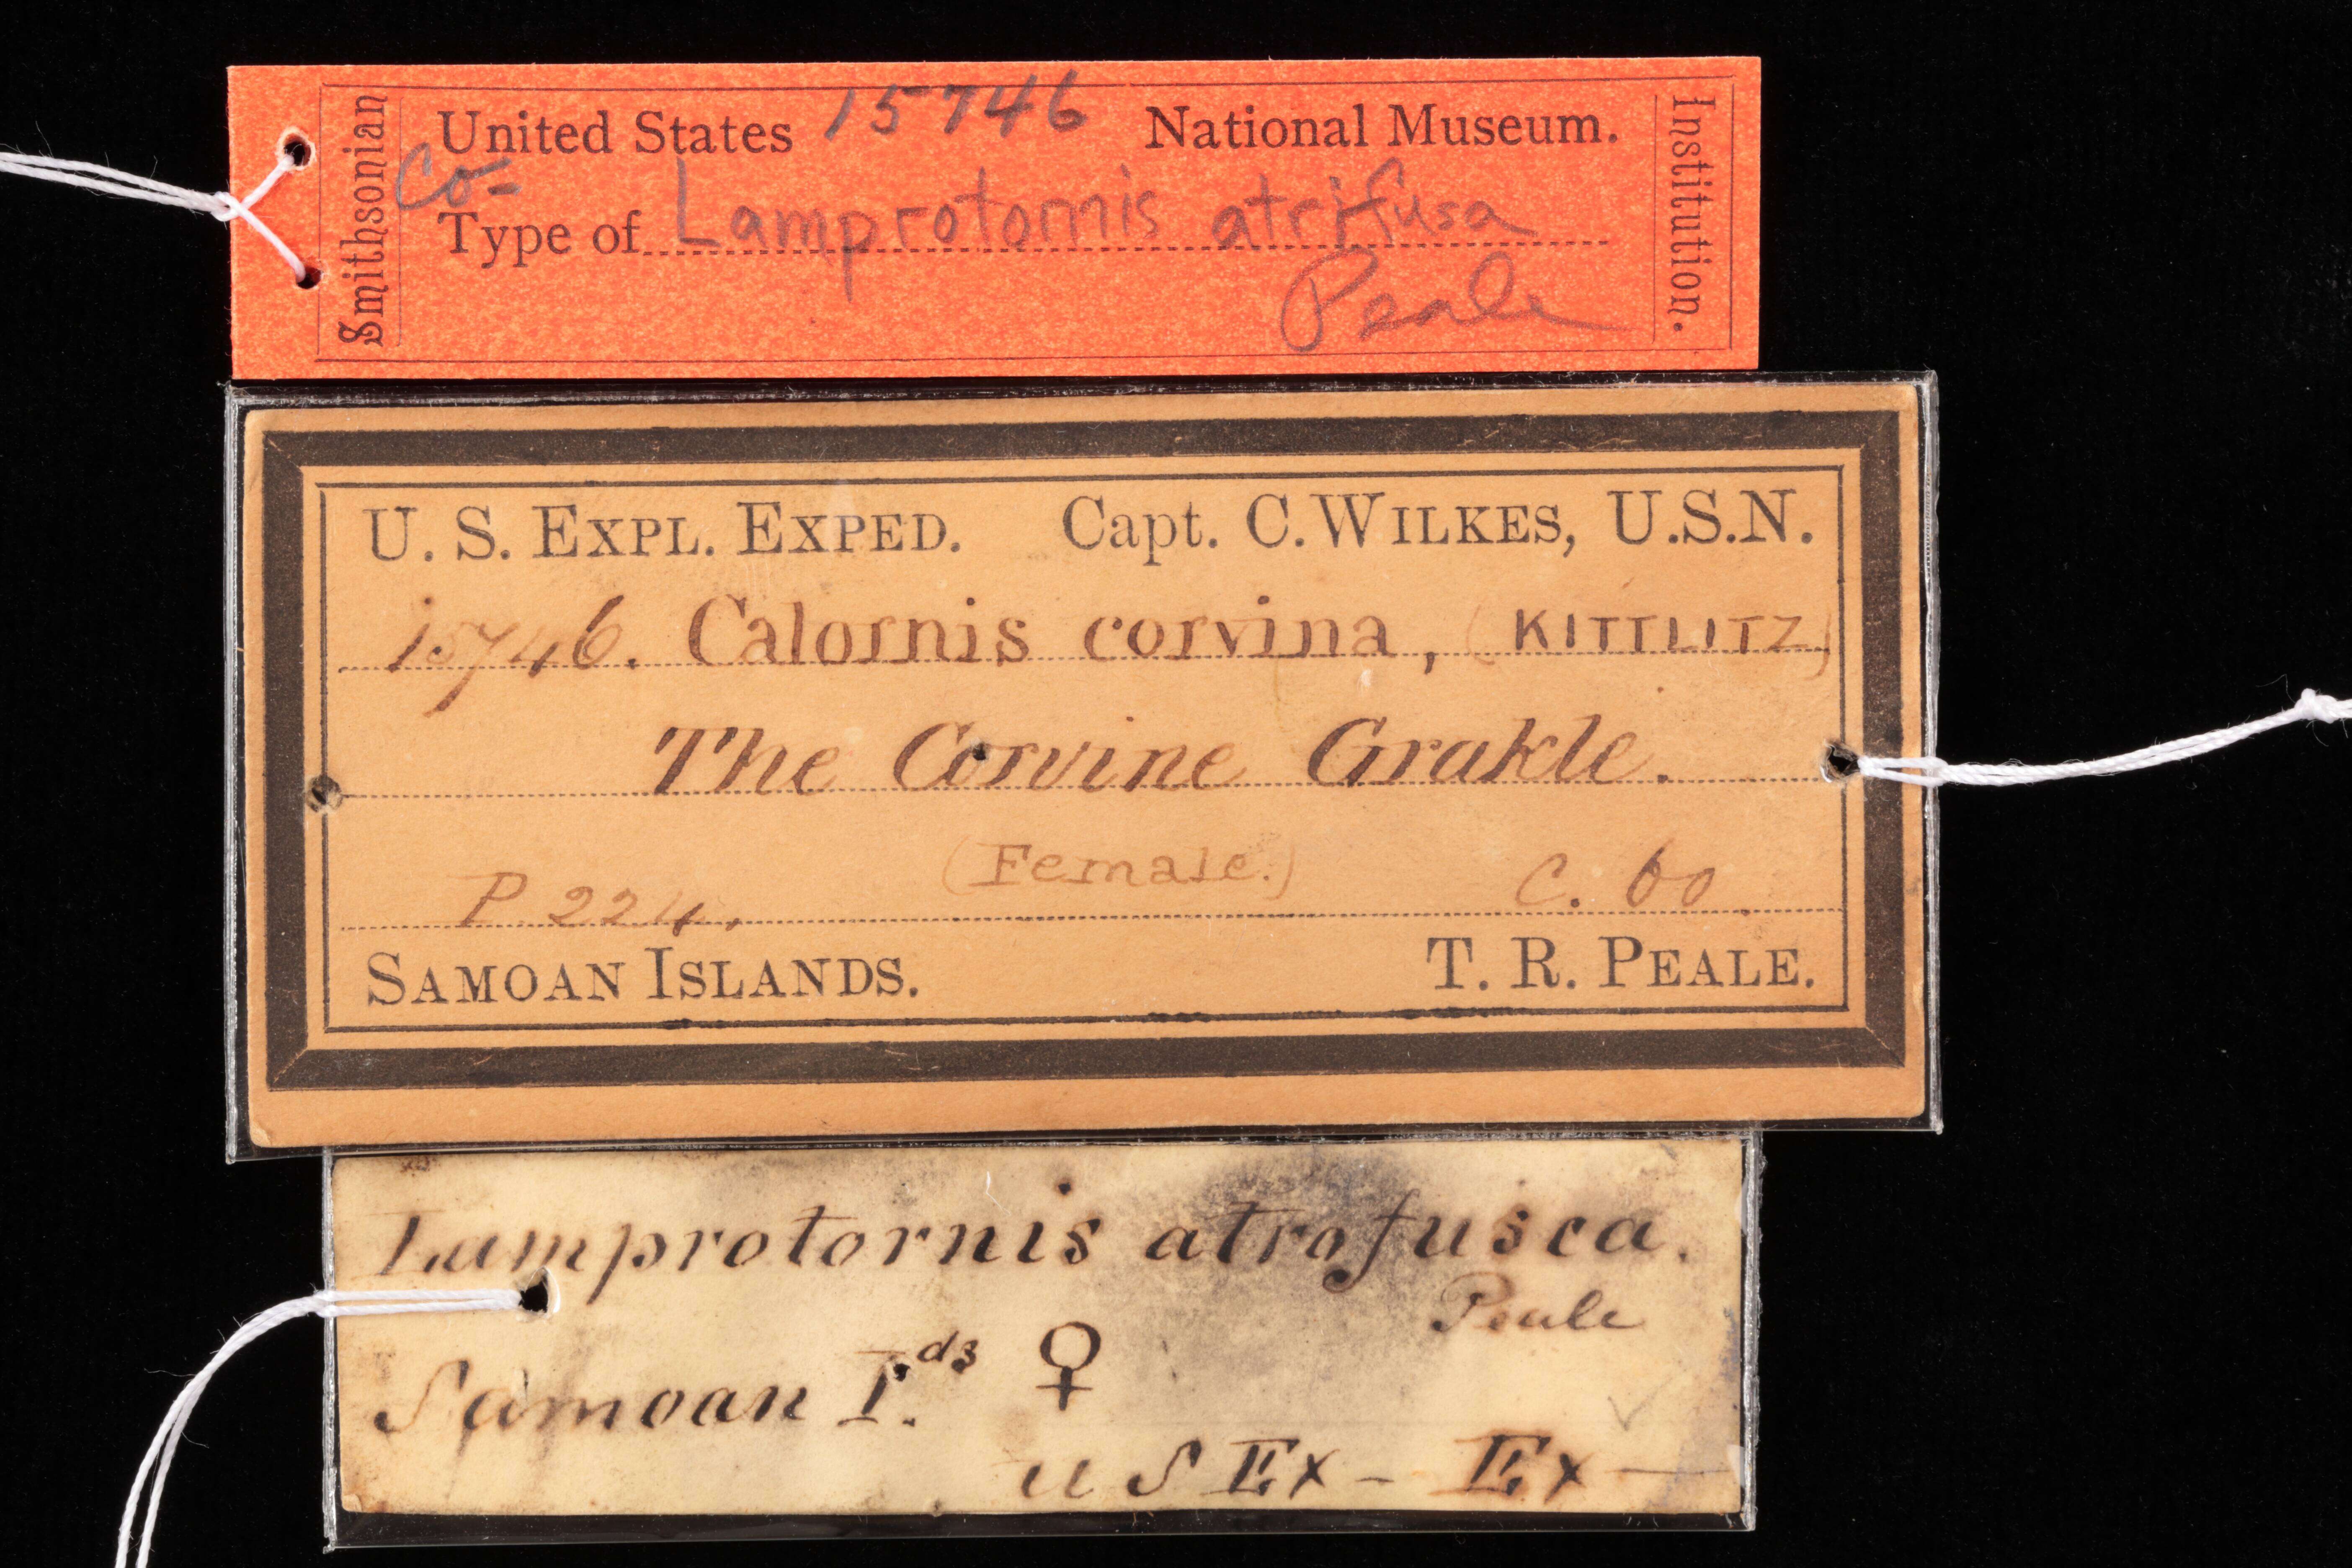 Smithsonian
United States 15746 National Museum.
Co-
Type of Lamprotornis atrifusa
Peale
Institution.
U. S. EXPL. EXPED. Capt. C. WILKES, U.S.N.
15746. Calornis corvina, (KITTLITZ)
The Corvine Grakle.
(Female.)
P 224. C. 60.
SAMOAN ISLANDS. T. R. PEALE.
Lamprotornis atrofusca.
Peale
Samoan I.ds ♀
U S Ex - Ex -